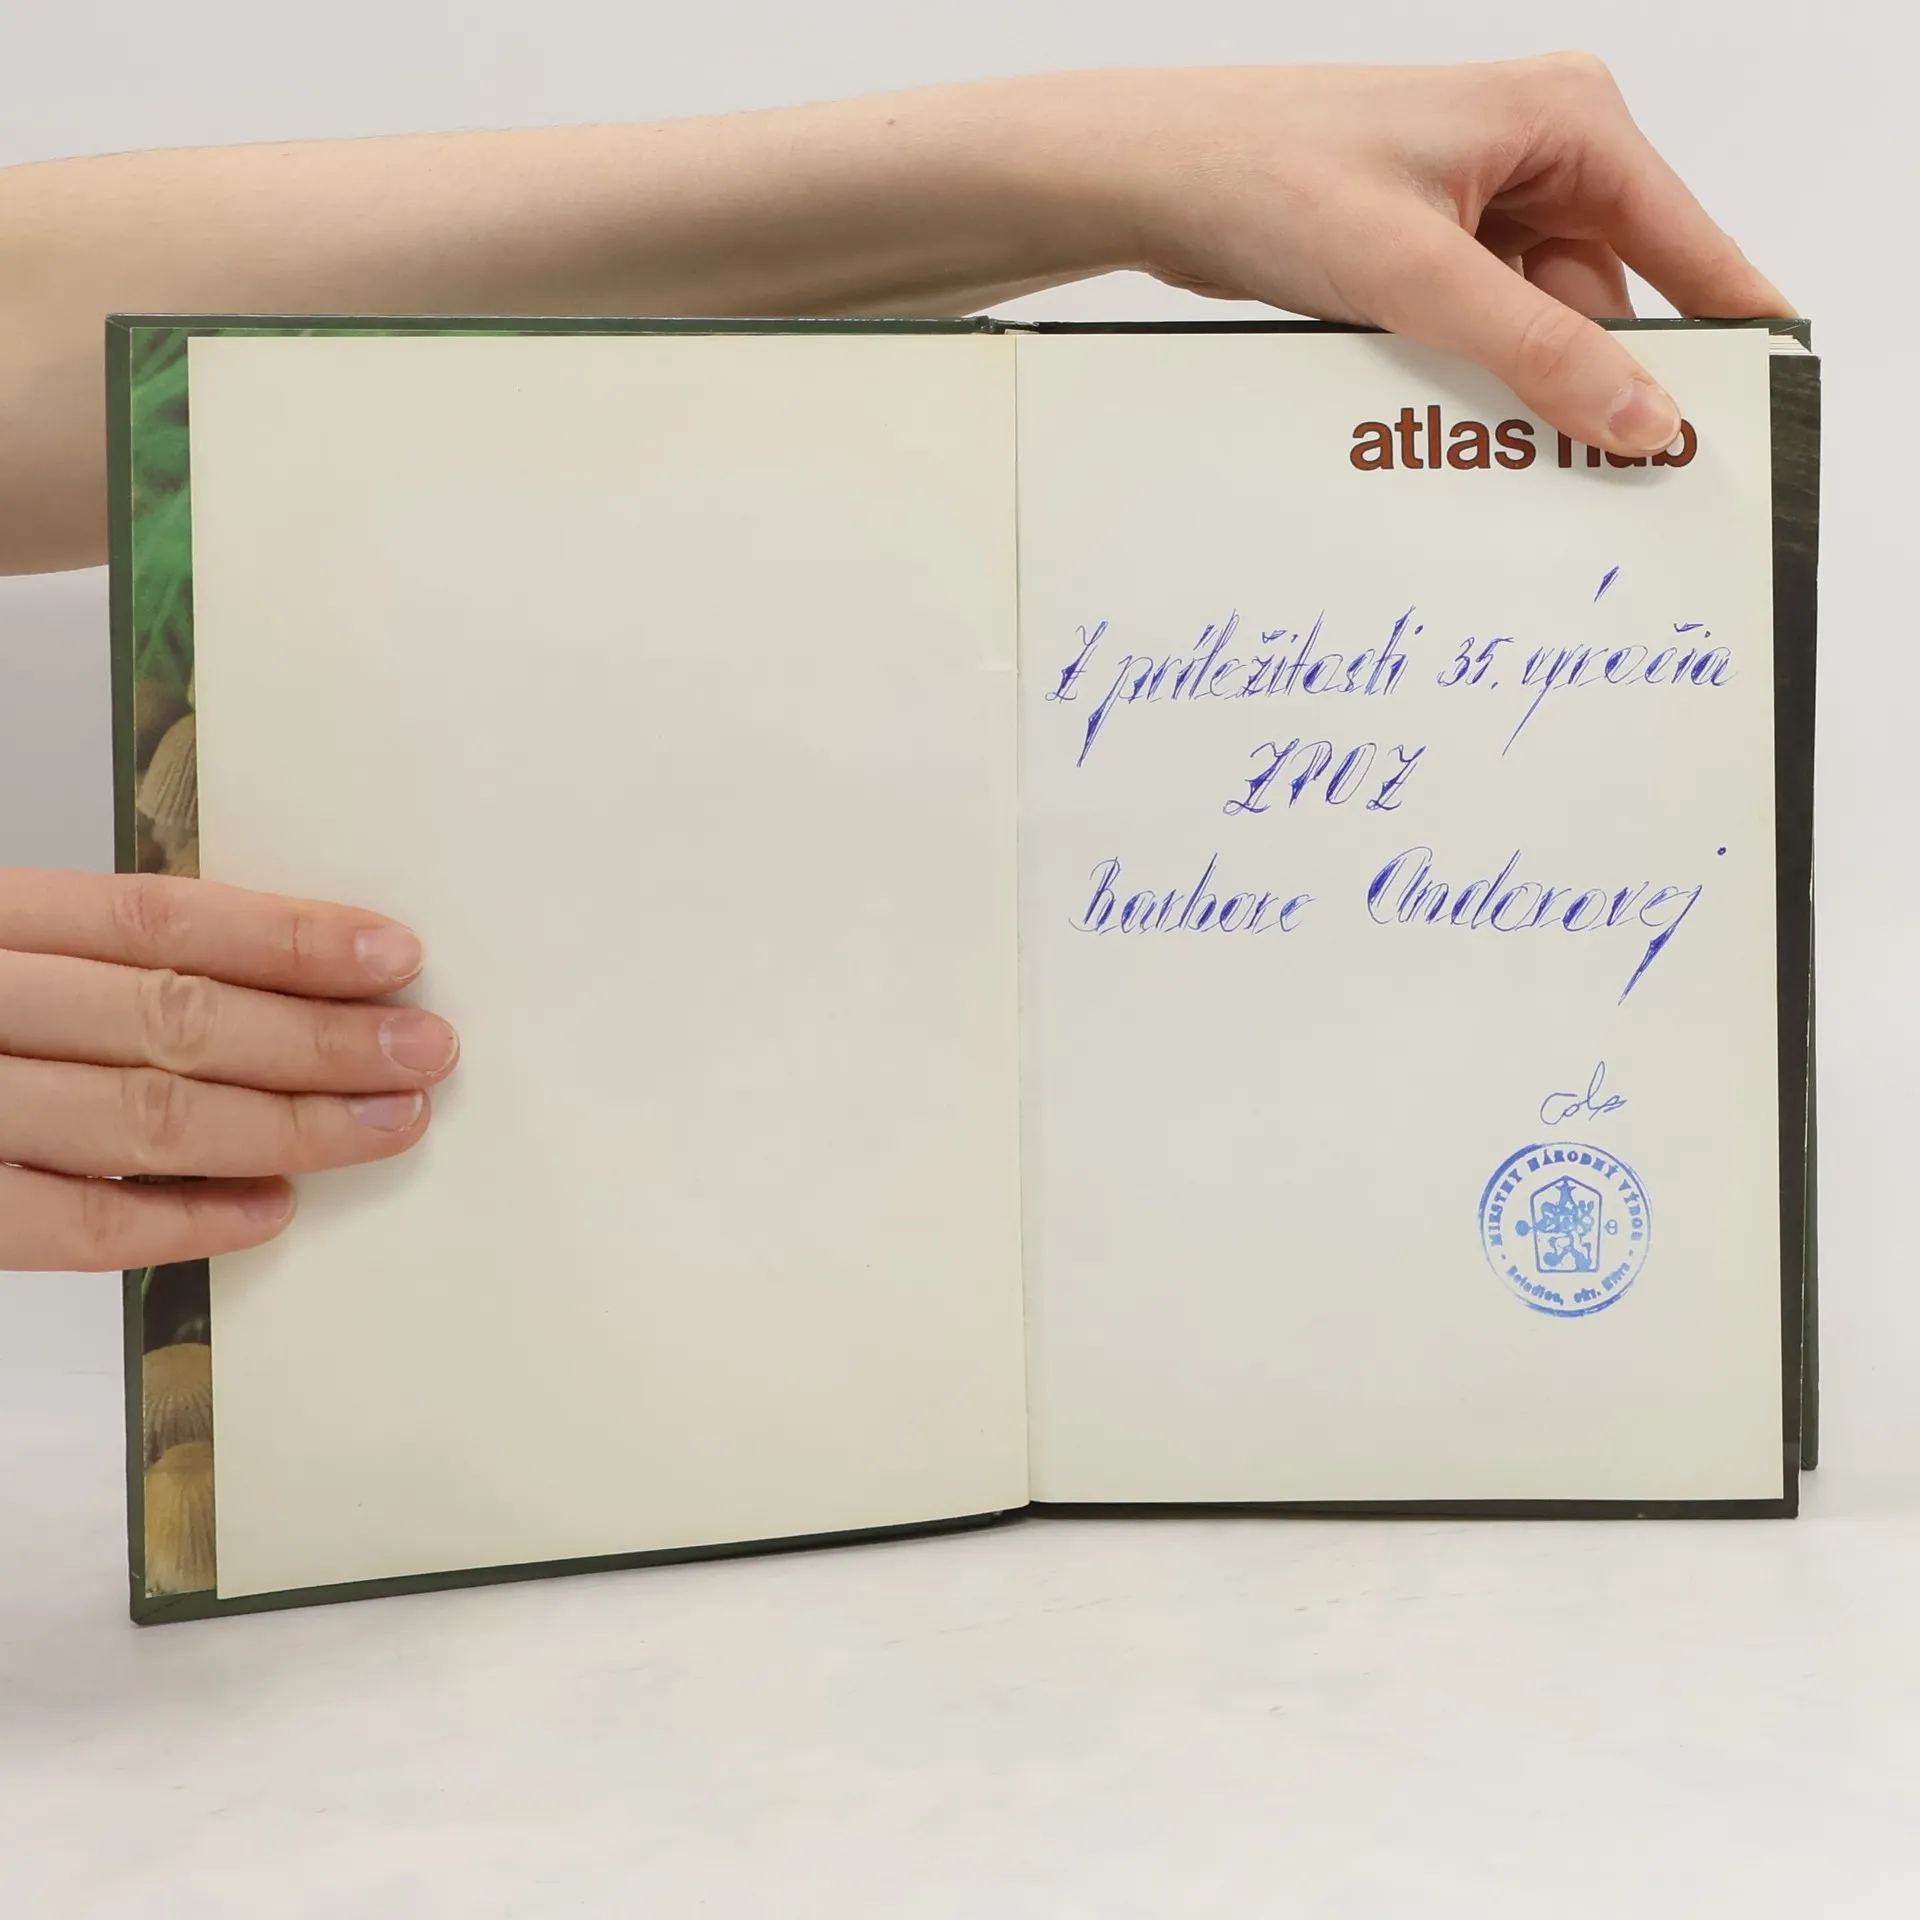 atlas húb
Z príležitosti 35. výročia
ZPOZ
Barbore Andorovej
MIESTNY NÁRODNÝ VÝBOR
Beladice, okr. Nitra